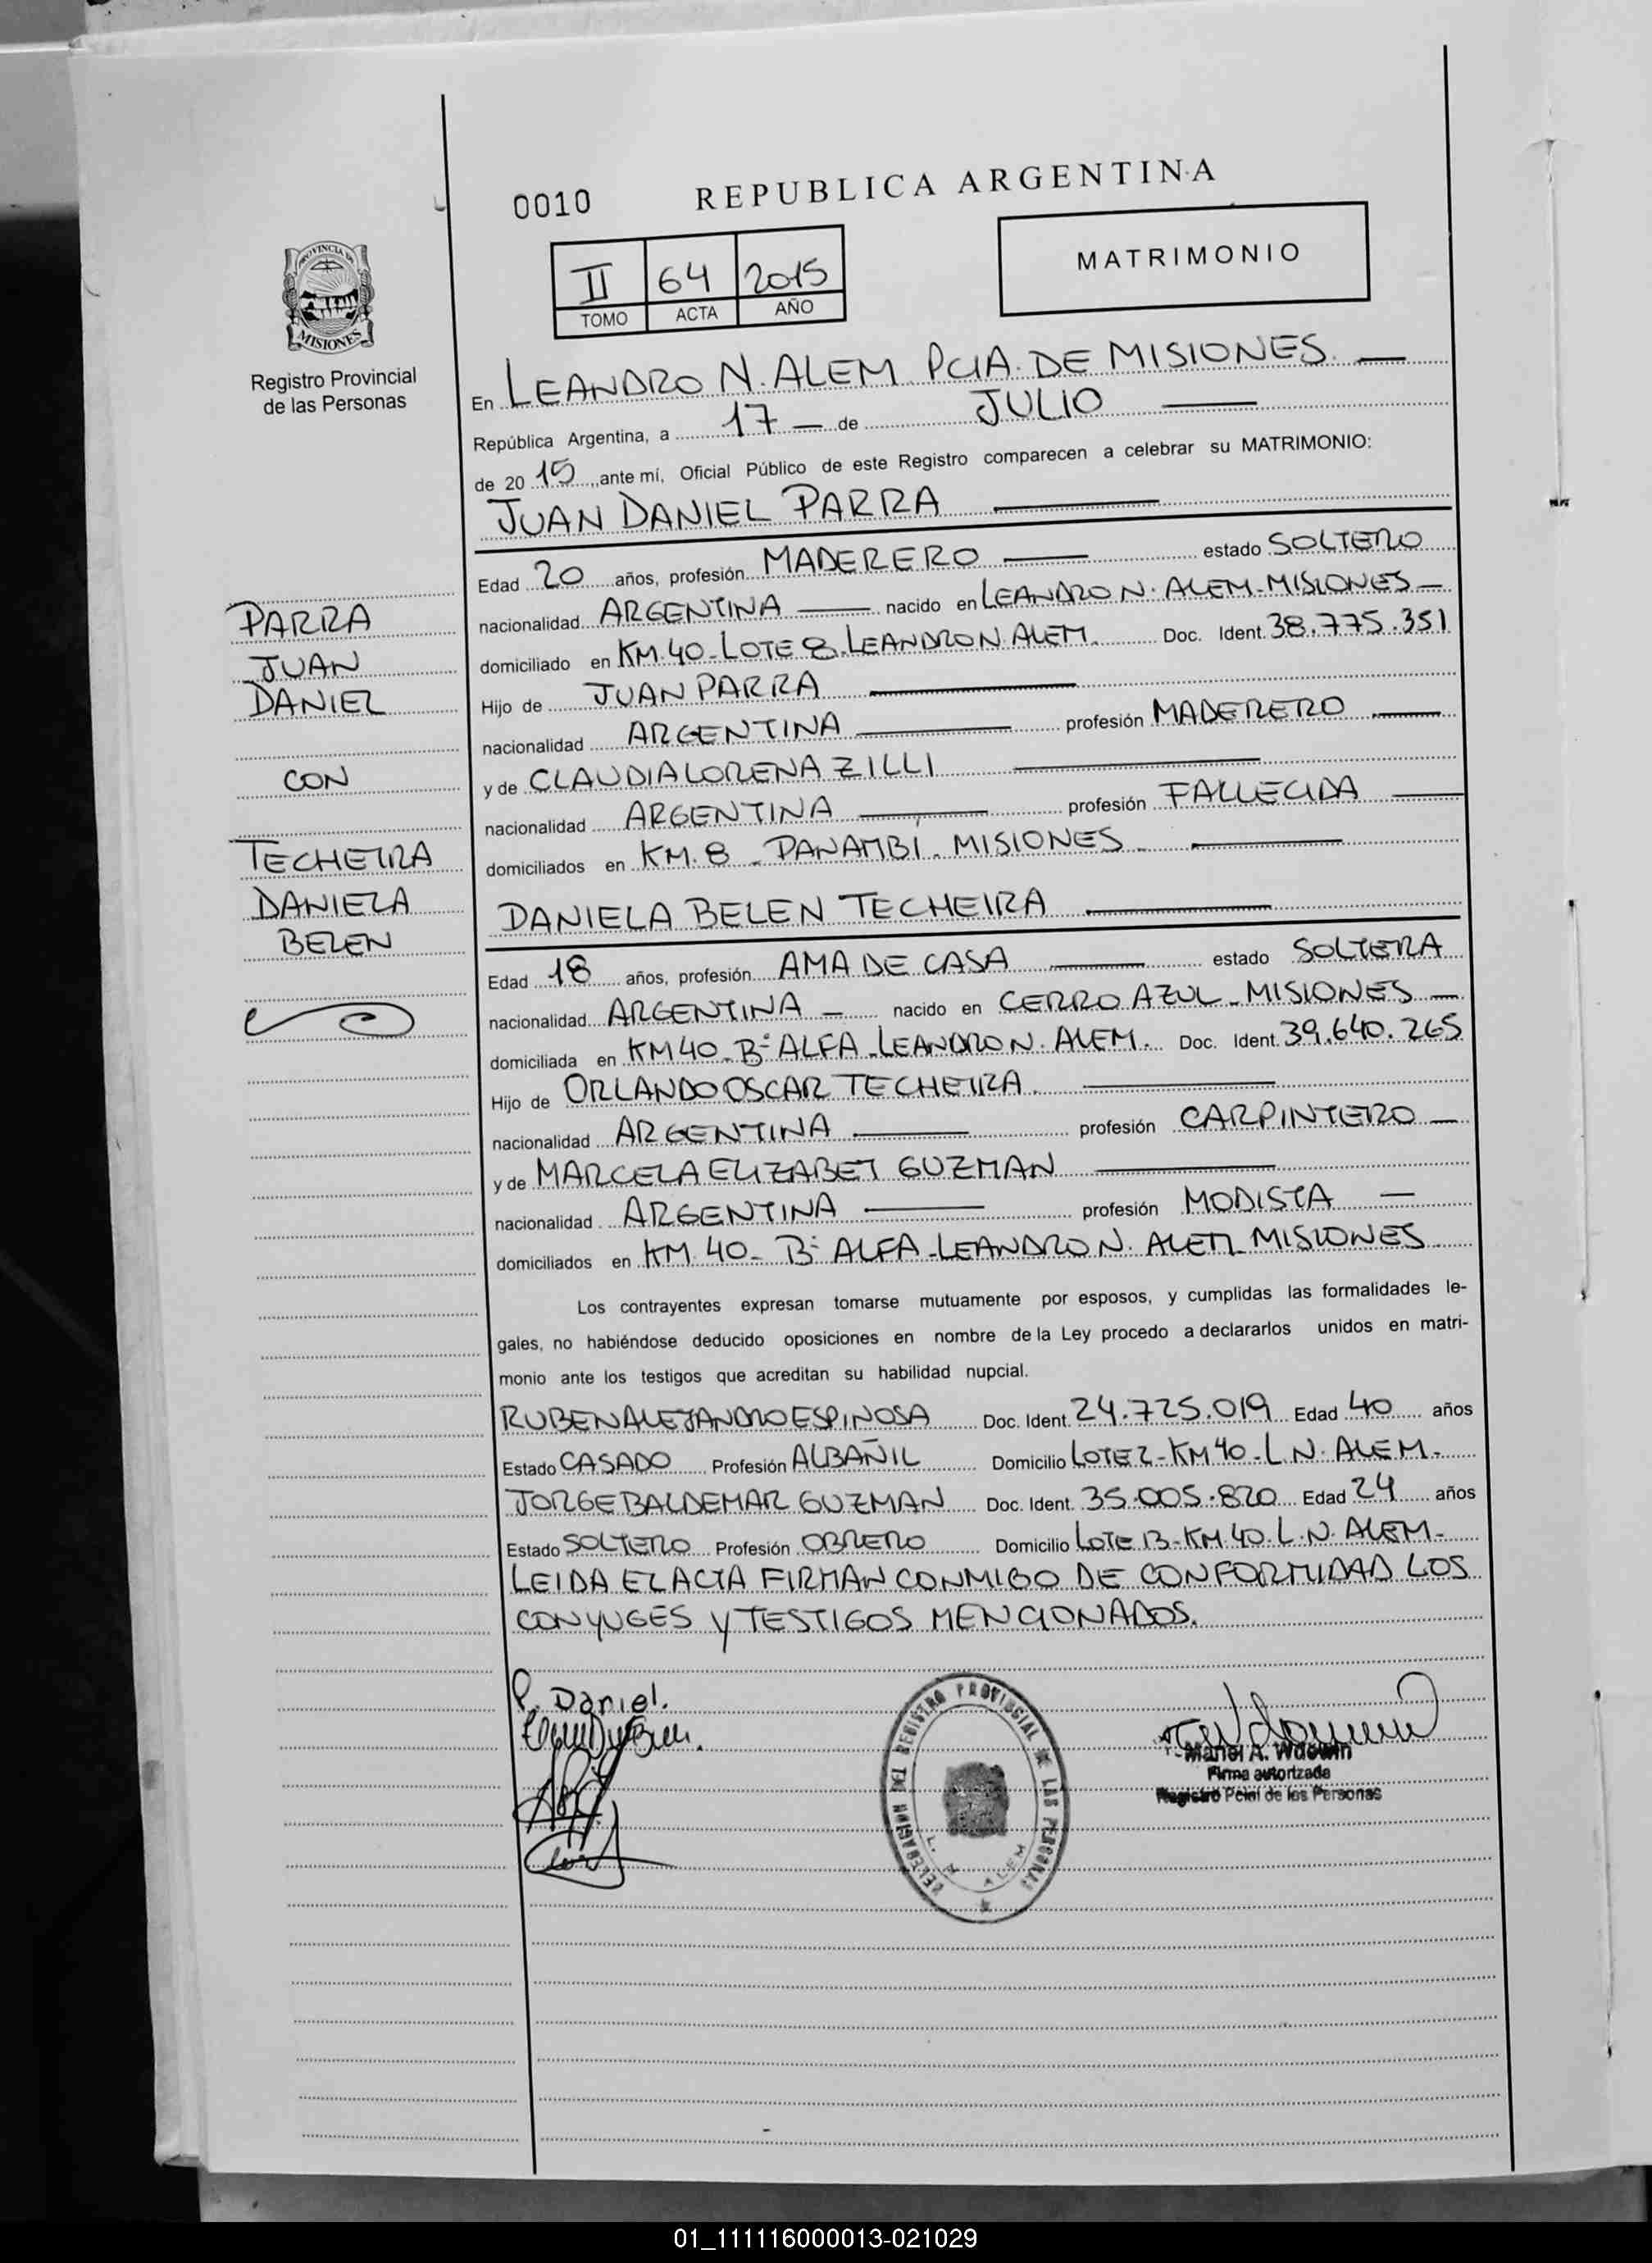 0010 REPUBLICA ARGENTINA
II 64 2015
TOMO ACTA AÑO
MATRIMONIO
PROVINCIA DE
MISIONES
Registro Provincial
de las Personas
En LEANDRO N. ALEM PCIA. DE MISIONES. —
República Argentina, a 17 — de JULIO —
de 20 15, ante mí, Oficial Público de este Registro comparecen a celebrar su MATRIMONIO:
JUAN DANIEL PARRA —
Edad 20 años, profesión MADERERO — estado SOLTERO
nacionalidad ARGENTINA — nacido en LEANDRO N. ALEM-MISIONES —
domiciliado en KM.40-LOTE 8.LEANDRO N. ALEM. Doc. Ident. 38.775.351
Hijo de JUAN PARRA —
nacionalidad ARGENTINA — profesión MADERERO —
y de CLAUDIA LORENA ZILLI —
nacionalidad ARGENTINA — profesión FALLECIDA —
domiciliados en KM.8 - PANAMBÍ. MISIONES —
PARRA
JUAN
DANIEL
CON
TECHEIRA
DANIELA
BELEN
DANIELA BELEN TECHEIRA —
Edad 18 años, profesión AMA DE CASA — estado SOLTERA
nacionalidad ARGENTINA — nacido en CERRO AZUL - MISIONES —
domiciliada en KM 40-B° ALFA-LEANDRO N. ALEM. Doc. Ident. 39.640.265
Hijo de ORLANDO OSCAR TECHEIRA. —
nacionalidad ARGENTINA — profesión CARPINTERO —
y de MARCELA ELIZABET GUZMAN —
nacionalidad ARGENTINA — profesión MODISTA —
domiciliados en KM.40- B° ALFA-LEANDRO N. ALEM. MISIONES
Los contrayentes expresan tomarse mutuamente por esposos, y cumplidas las formalidades le-
gales, no habiéndose deducido oposiciones en nombre de la Ley procedo a declararlos unidos en matri-
monio ante los testigos que acreditan su habilidad nupcial.
RUBEN ALEJANDRO ESPINOSA Doc. Ident. 24.725.019 Edad 40 años
Estado CASADO Profesión ALBAÑIL Domicilio LOTE 2-KM 40-L.N. ALEM-
JORGE BALDEMAR GUZMAN Doc. Ident. 35.005.820 Edad 24 años
Estado SOLTERO Profesión OBRERO Domicilio LOTE 13-KM 40. L.N. ALEM-
LEIDA EL ACTA FIRMAN CONMIGO DE CONFORMIDAD LOS
CONYUGES Y TESTIGOS MENCIONADOS.
P. Daniel.
DELEGACION DEL REGISTRO PROVINCIAL DE LAS PERSONAS
L. N. ALEM
A. Wdowin
Firma autorizada
Registro Pcial de las Personas
01_111116000013-021029